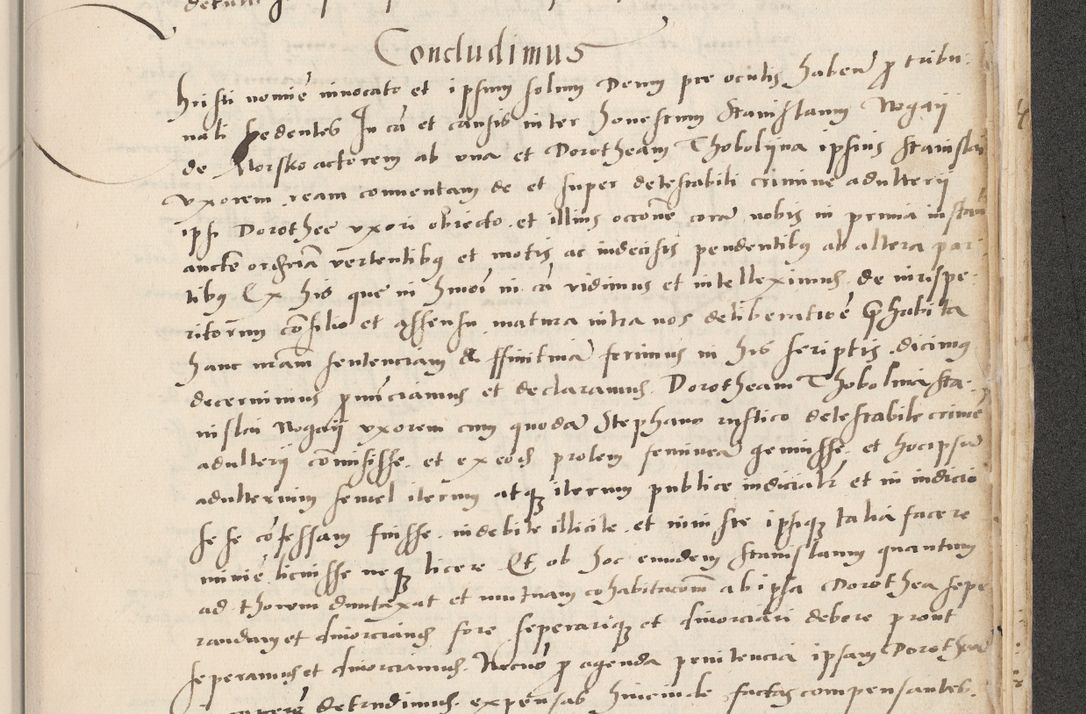 Concludimus
hristi nomine invocato et ipsum solum Deum pre oculis habeñ p tribu
nali sedentes In cā et causis inter honestum Stanislaum Nogaÿ
de Morsko actorem ab una et Dorotheam Thoboliina ipsius Stanislai
uxorem ream conventam de et super detestabili crimine adulterii
ipsi Dorothee uxori obiecto et illius occone corā nobis in prima instan
tibus Ex his que in hmōi in cā vidimus et intelleximus de iurispe
ritorum cōsilio et assensu matura intra nos deliberatione prehabita
hanc nrām sentenciam diffinitivā ferimus in his scriptis dicimus
decernimus pnūciamus et declaramus Dorotheam Thobolina Sta
nislai Nogaÿ uxorem cum quodā Stephano rustico detestabile crimē
adulterii cōmisisse et ex eodē prolem femineā genuisse et hoc ipsū
adulterium semel iterum atqз iterum publice iudicialr et in iudicio
se se cōfessam fuisse indebite illicite et iniuste ipsiqз talia facere
minie licuisse neqз licere Et ob hoc eundem Stanislaum quantum
ad thorum duntaxat et mutuam cohabitacōm ab ipsa Dorothea sepe
randum et divorciandū fore seperariqз et divorciari debere prout
seperamus et divorciamus Necnō p agenda penitencia ipsam Dorotheā
detrudimus expensas huiusmodi factas compensantes